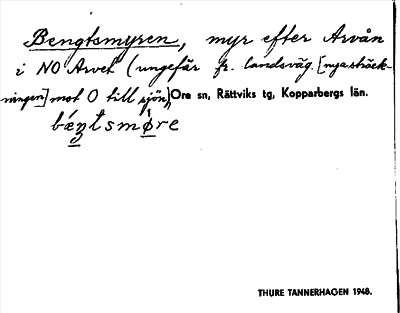 Bengtsmyren, myr efter Arvån
i NO Arvet (ungefär fr. landsväg. [nya sträck-
ningen] mot O till sjön), Ore sn, Rättviks tg, Kopparbergs län.
bæŋtsmøre
THURE TANNERHAGEN 1948.